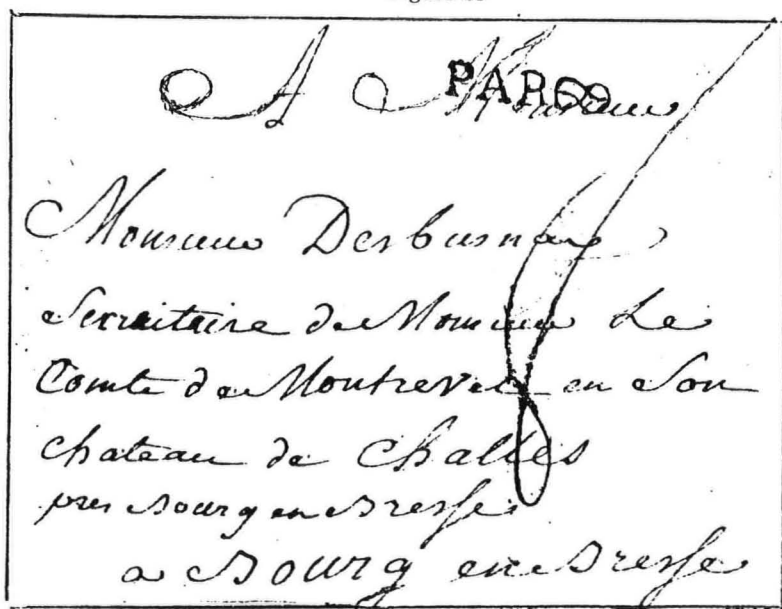 A Monsieur
PARis
Monsieur Desbusnar
Secraitaire de Monsieur Le
Comte de Montrevel en Son
chateau de Challes
pres Bourg en Bresse
a Bourg en Bresse
8